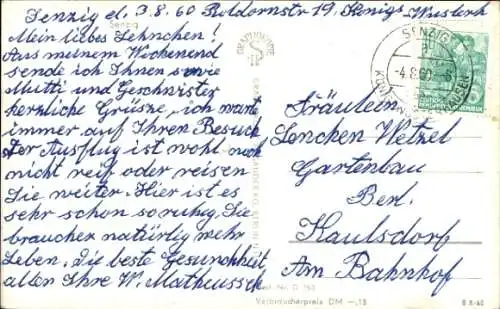 Senzig d. 3.8.60
Mein liebes Lehnchen!
Aus meinem Wochenend
sende ich Ihnen sowie
Mutti und Geschwister
herzliche Grüsse, ich warte
immer auf Ihren Besuch
Der Ausflug ist wohl noch
nicht reif oder reisen
Sie weiter. Hier ist es
sehr schon so ruhig. Sie
braucher natürlig mehr
Leben. Die beste Gesundheit
alter Ihre W. Matheussek
Senzig
SENZIG
-4.8.60.-6
Fräulein
Lenchen Wetzel
Gartenbau
Berl.
Kaulsdorf
Am Bahnhof
Verbraucherpreis DM -,15